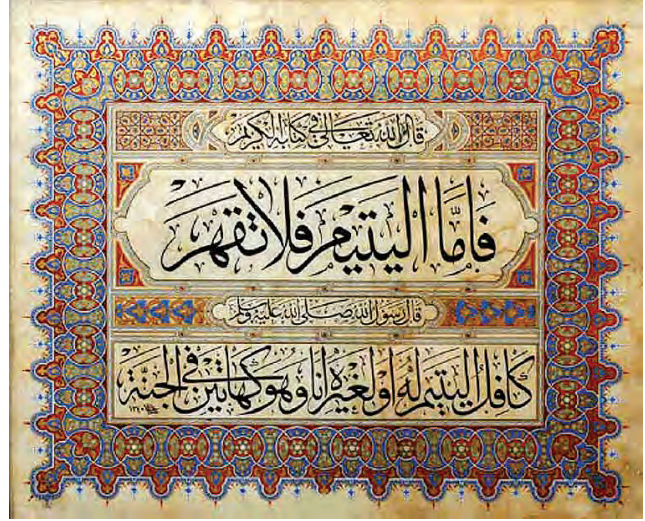 قال الله تعالى في كتابه الكريم
فَأَمَّا اليَتِيْمَ فَلا تَقْهَرْ
قال رسول الله صلى الله عليه وسلم
كافل اليتيم له أو لغيره أنا وهو كهاتين في الجنة